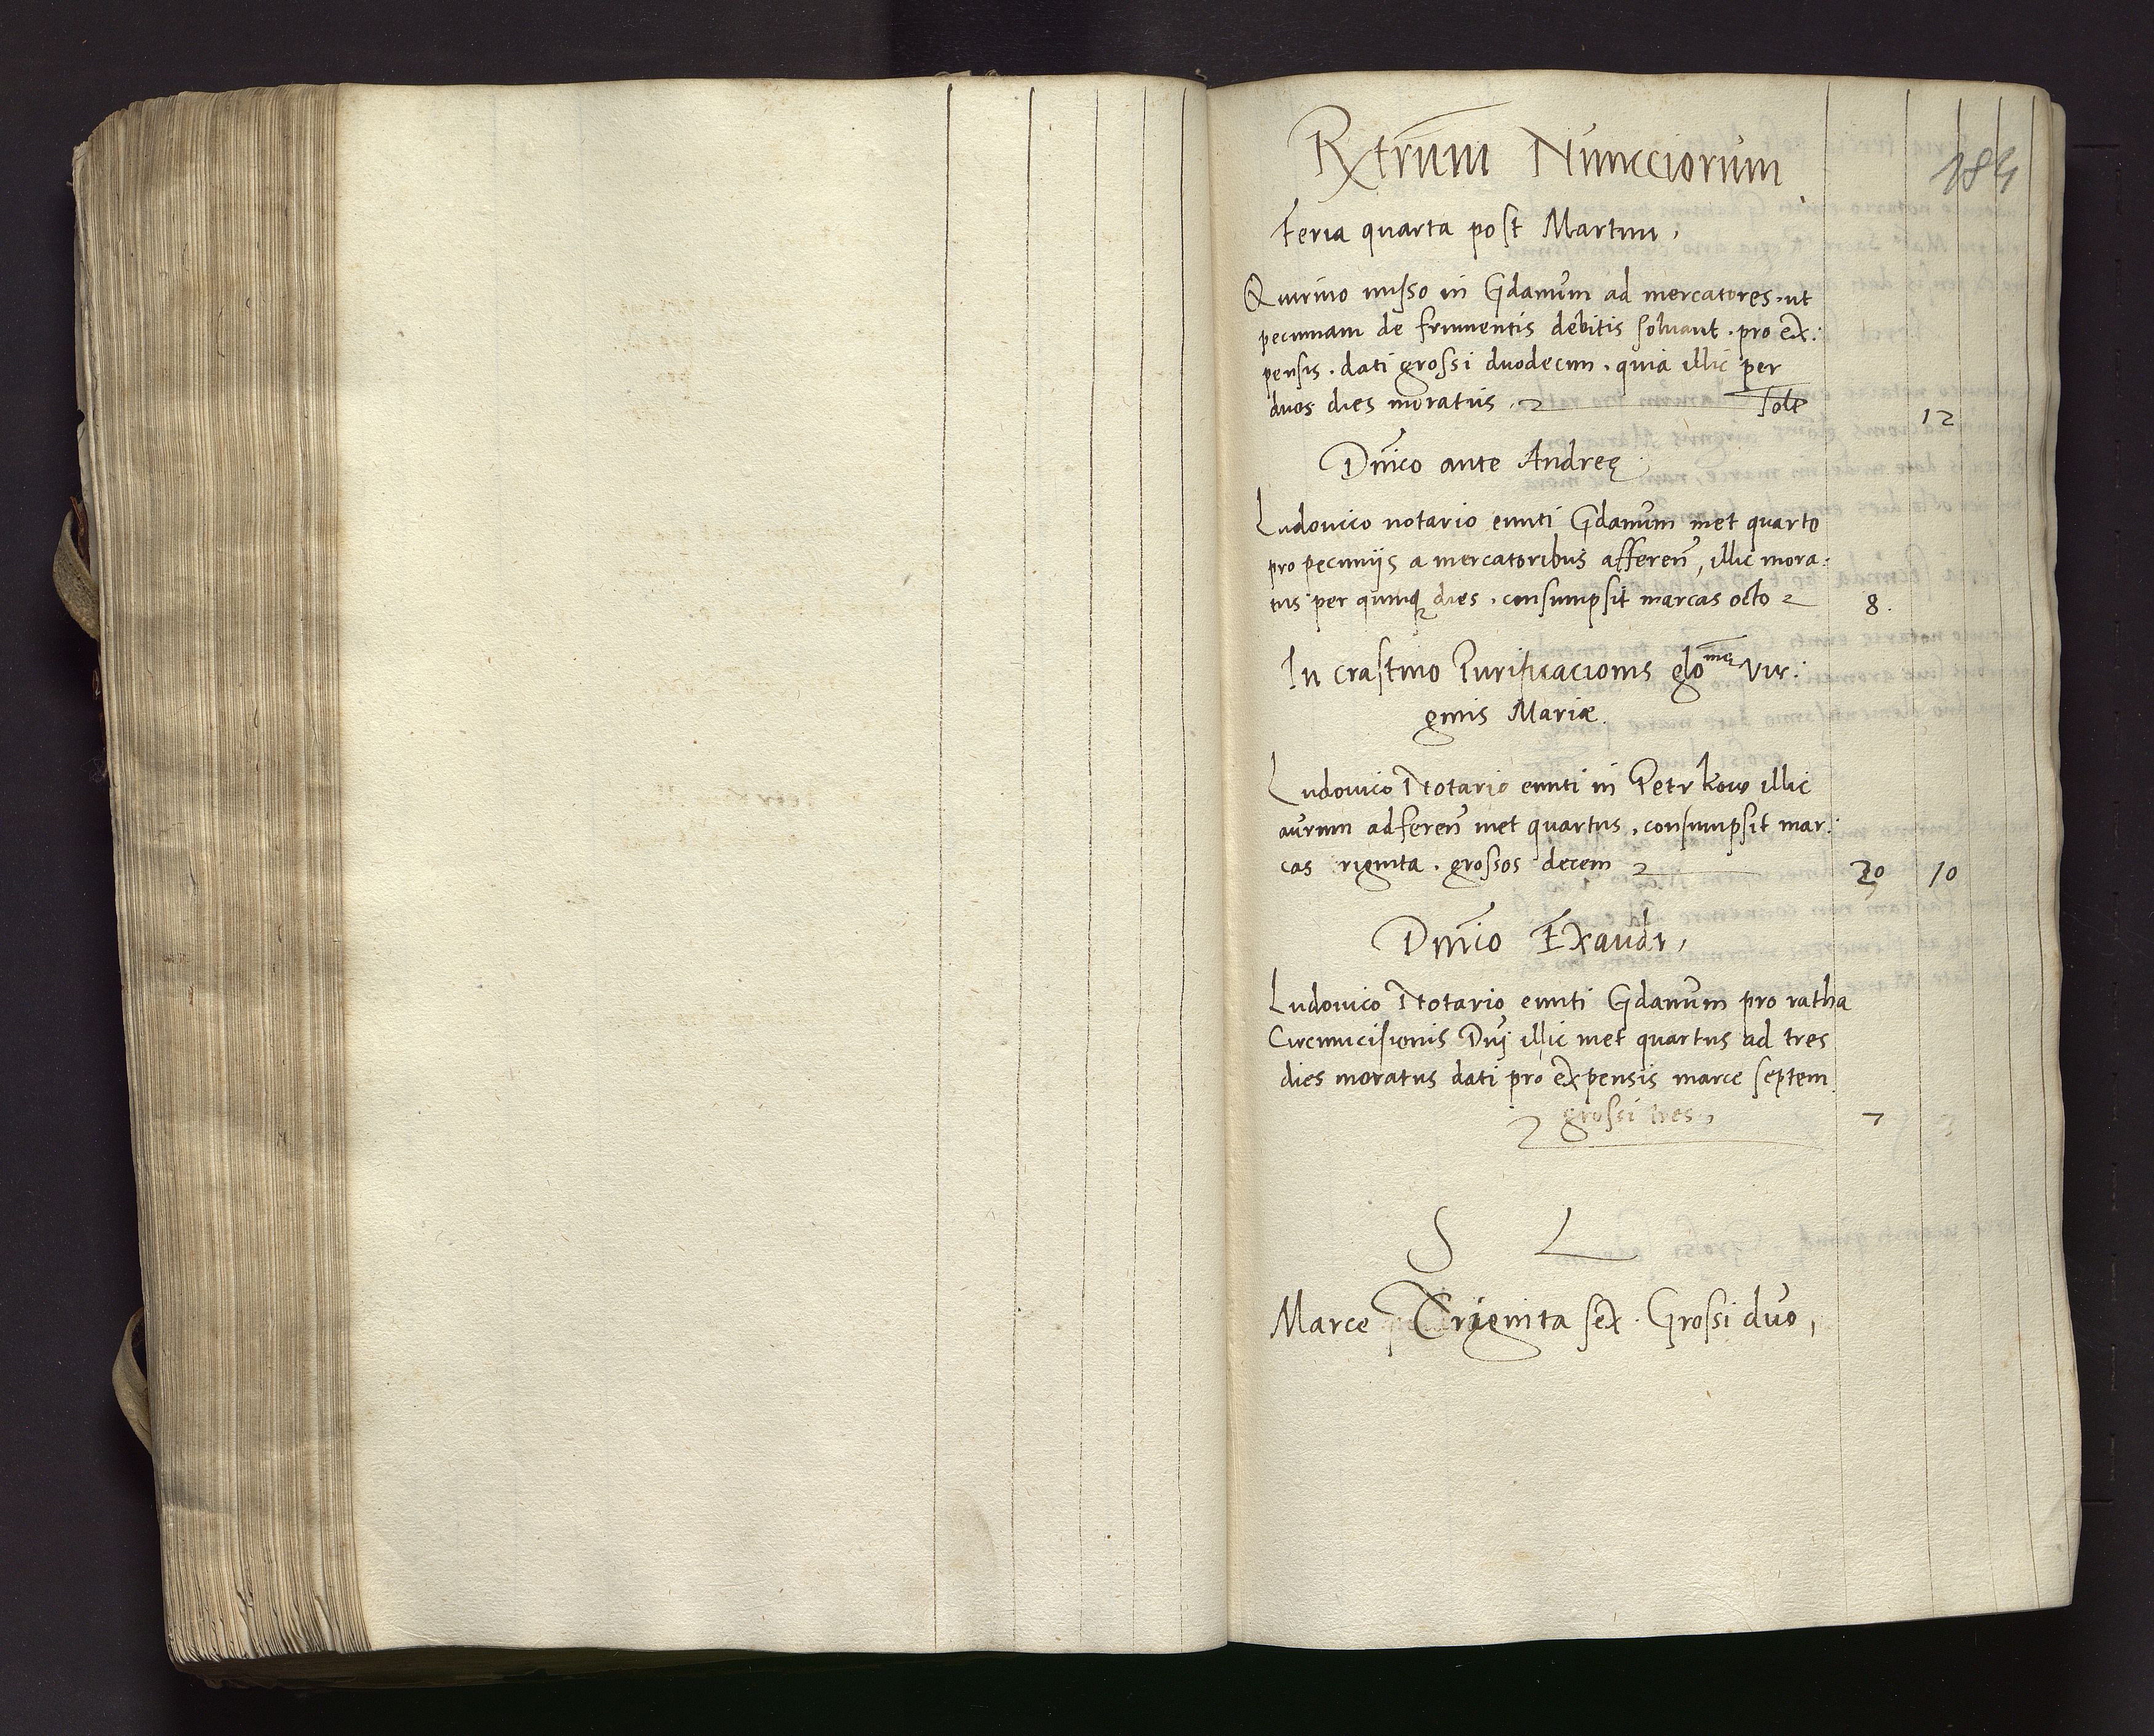 Rxtrum Nuncciorum
184
Feria quarta post Martini,
Quirino misso in Gdanum ad mercatores. ut
pecuniam de frumentis debitis solvant. pro ex:
pensis. dati grossi duodecim. quia illic per
duos dies moratus. 12
Dnico ante Andreę
Ludovico notario eunti Gdanum met quarto
pro pecuniis a mercatoribus afferen, illic mora:
tus per quinq dies. consumpsit marcas octo 8.
In crastino Purificacionis glo mę Vir:
ginis Mariæ.
Ludovico Notario eunti in Petrkow illic
aurum adferen met quartus. consumpsit mar:
cas riginta. grossos decem 20 10
Dnico Exaudi,
Ludovico Notario eunti Gdanum pro ratha
Circumcisionis Dni illic met quartus ad tres
dies moratus dati pro expensis marce septem
grossi tres, 7
S L
Marce Triginta sex. Grossi duo,